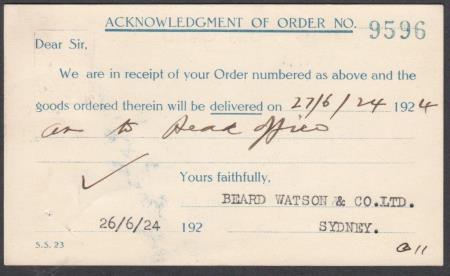 ACKNOWLEDGMENT OF ORDER NO. 9596
Dear Sir,
We are in receipt of your Order numbered as above and the
goods ordered therein will be delivered on 27/6/24 1924
to Head Office
Yours faithfully,
BEARD WATSON & CO.LTD.
26/6/24 192 SYDNEY.
S.S. 23